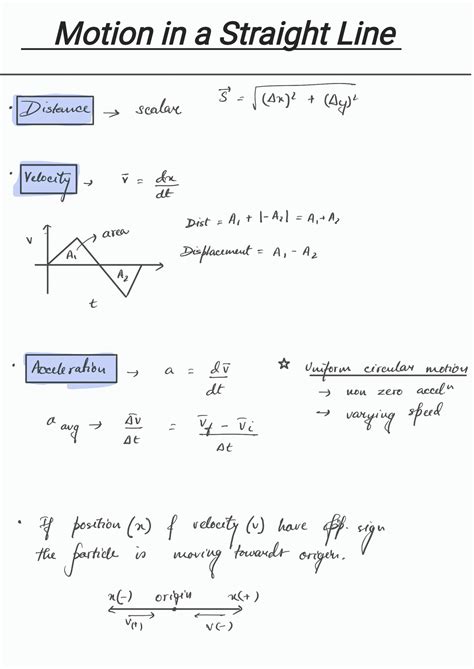 Motion in a Straight Line
• Distance → scalar S⃗ = √(Δx)² + (Δy)²
• Velocity → v̄ = dx/dt
Dist = A₁ + |-A₂| = A₁ + A₂
Displacement = A₁ - A₂
v
area
A₁
A₂
t
• Acceleration → a = dv̄/dt
a avg → Δv̄/Δt = (v̄f - v̄i)/Δt
☆ Uniform circular motion
→ non zero acceln
→ varying speed
• If position (x) & velocity (v) have opp. sign
the particle is moving towards origin.
x(-) origin x(+)
v(+) v(-)